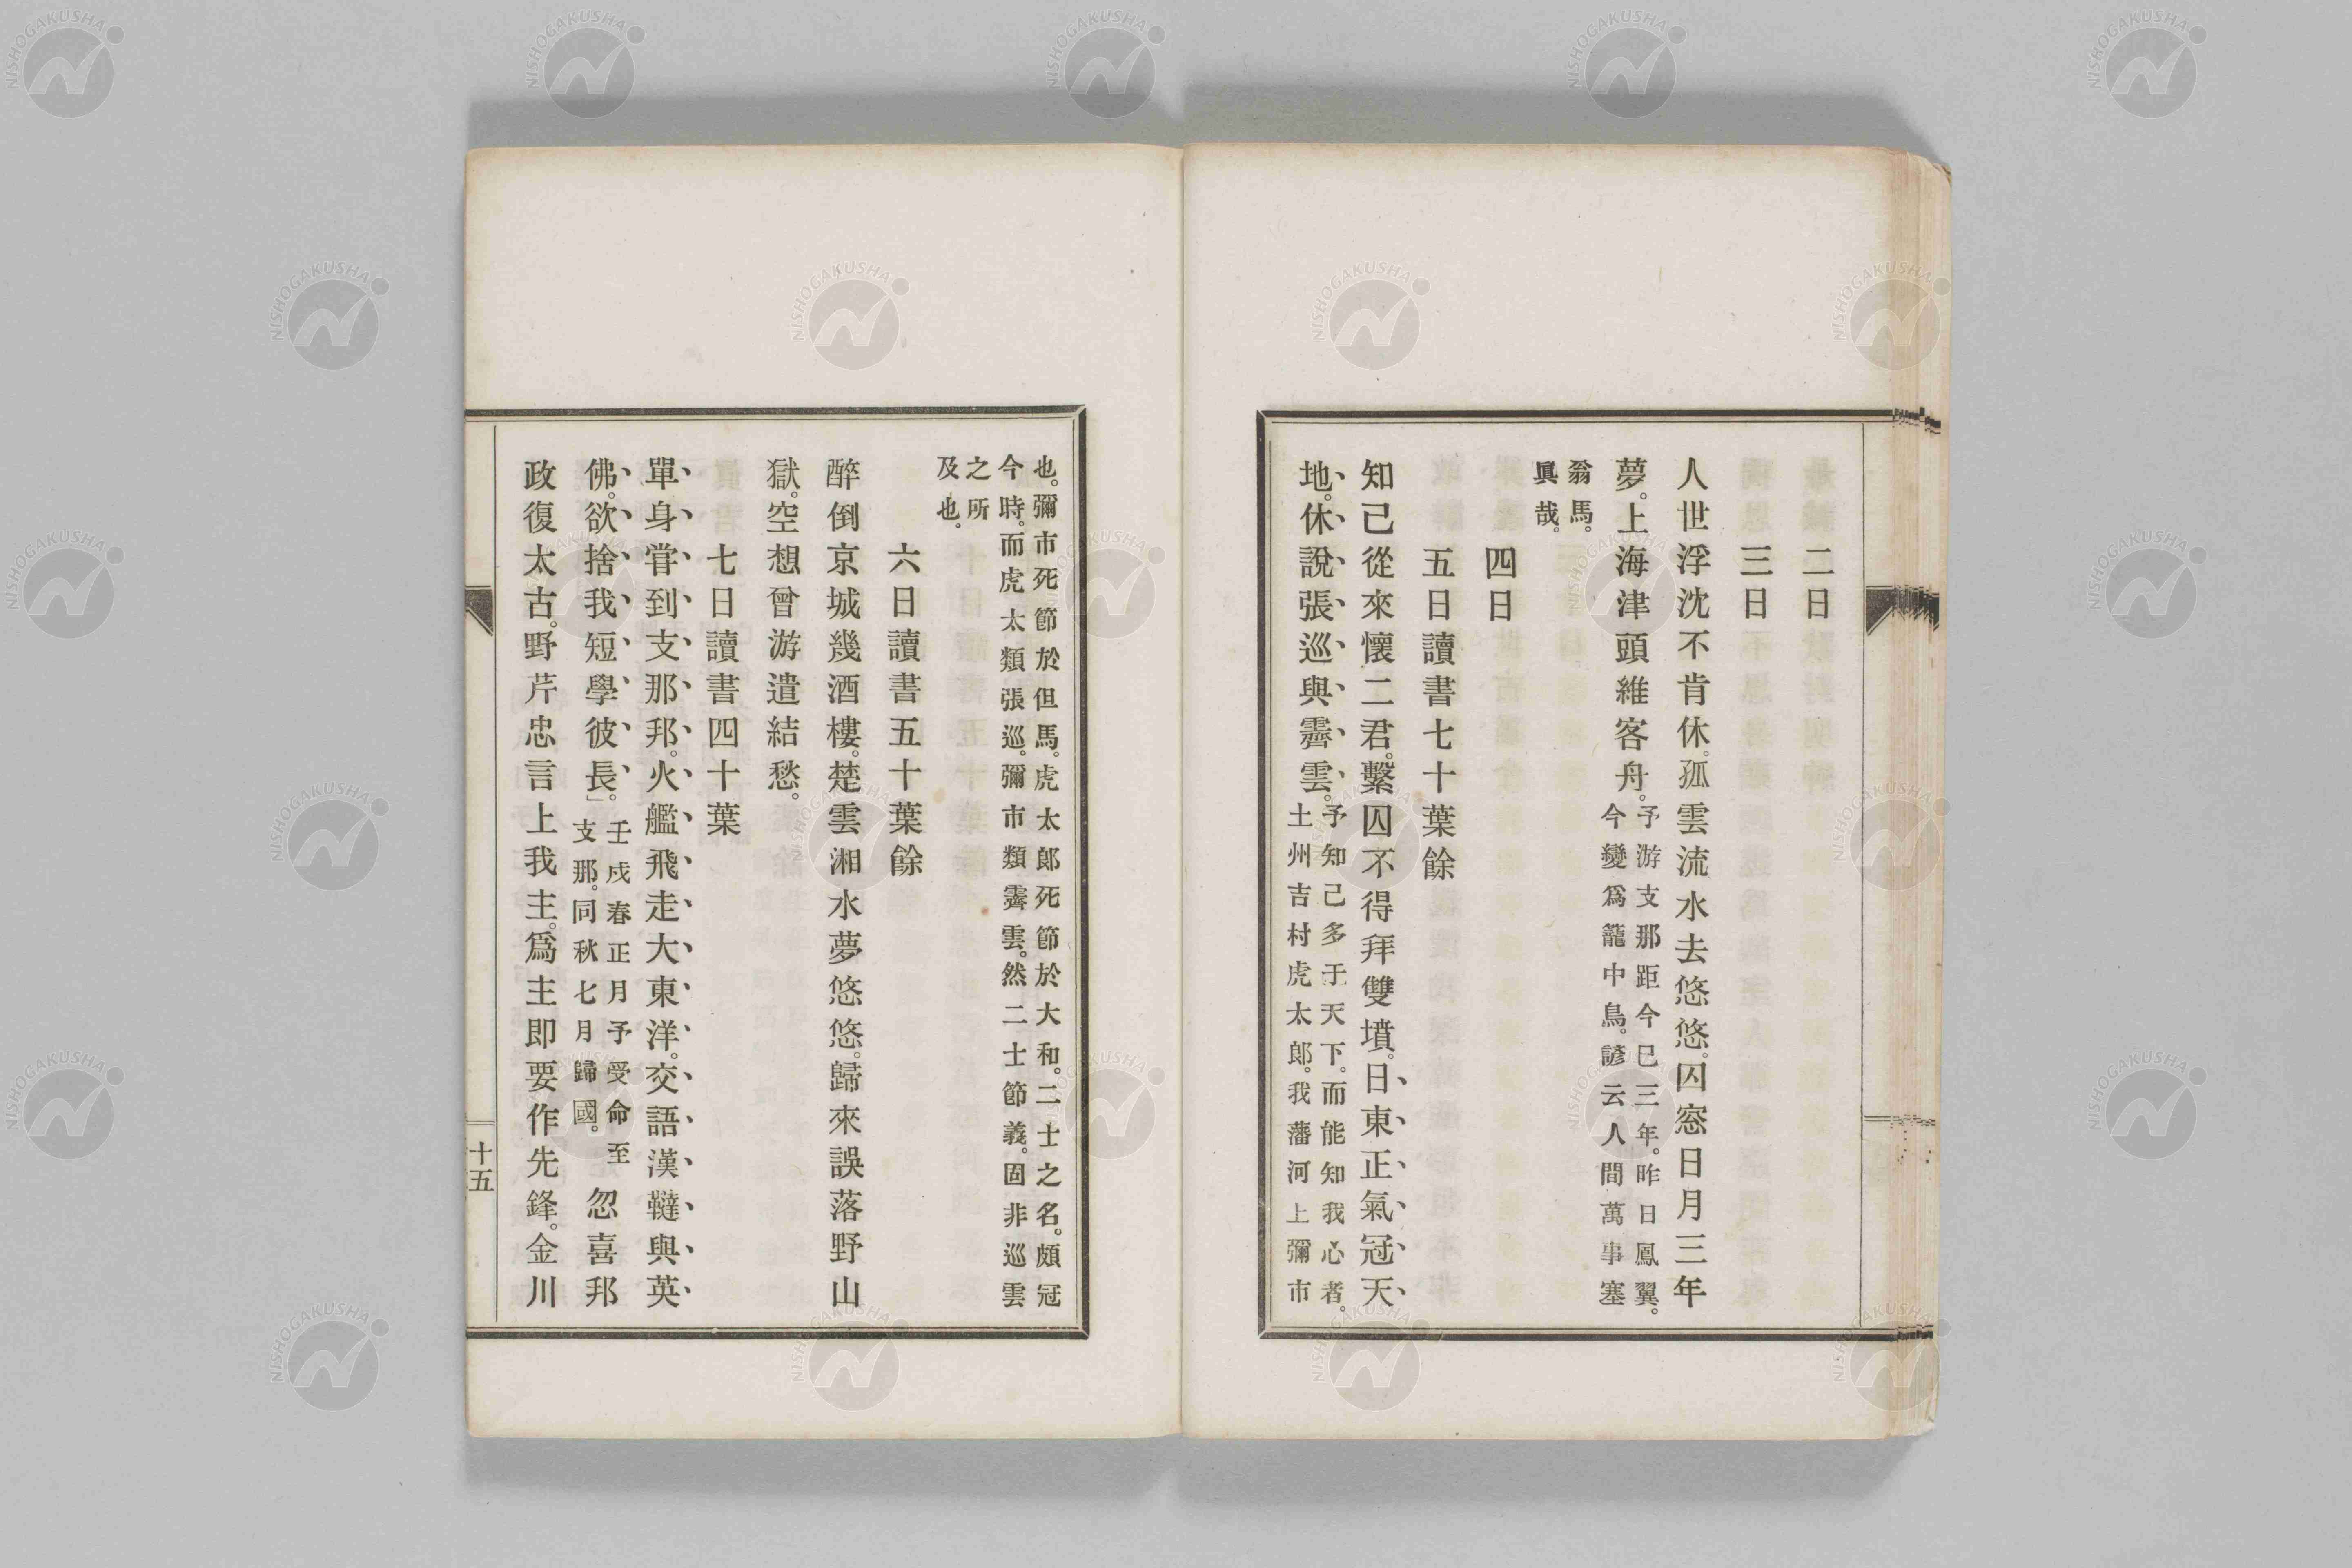 二日
三日
人世浮沈不肯休。孤雲流水去悠悠。囚窓日月三年
夢。上海津頭維客舟。
予游支那距今已三年。昨日鳳翼。
今變爲籠中鳥。諺云人間萬事塞
翁馬。
眞哉。
四日
五日讀書七十葉餘
知己從來懷二君。繫囚不得拜雙墳。日東正氣冠天
地。休說張巡與霽雲。
予知己多于天下。而能知我心者。
土州吉村虎太郎。我藩河上彌市
也。彌市死節於但馬。虎太郎死節於大和。二士之名。頗冠
今時。而虎太類張巡。彌市類霽雲。然二士節義。固非巡雲
之所
及也。
六日讀書五十葉餘
醉倒京城幾酒樓。楚雲湘水夢悠悠。歸來誤落野山
獄。空想曾游遣結愁。
七日讀書四十葉
單身嘗到支那邦。火艦飛走大東洋。交語漢韃與英
佛。欲捨我短學彼長。」
壬戍春正月予受命至
支那。同秋七月歸國。
忽喜邦
政復太古。野芹忠言上我主。爲主即要作先鋒。金川
十五
NISHOGAKUSHA